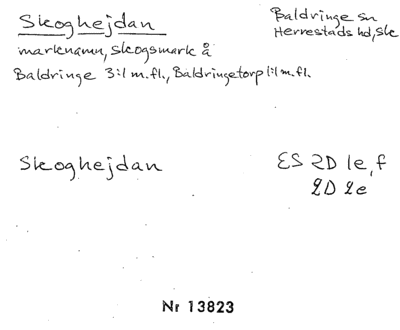 Skoghejdan
Baldringe sn
Herrestads hd, Sk
marknamn, skogsmark å
Baldringe 3:1 m.fl., Baldringetorp 1:1 m.fl.
Skoghejdan
ES 2D 1e,f
2D 2e
Nr 13823